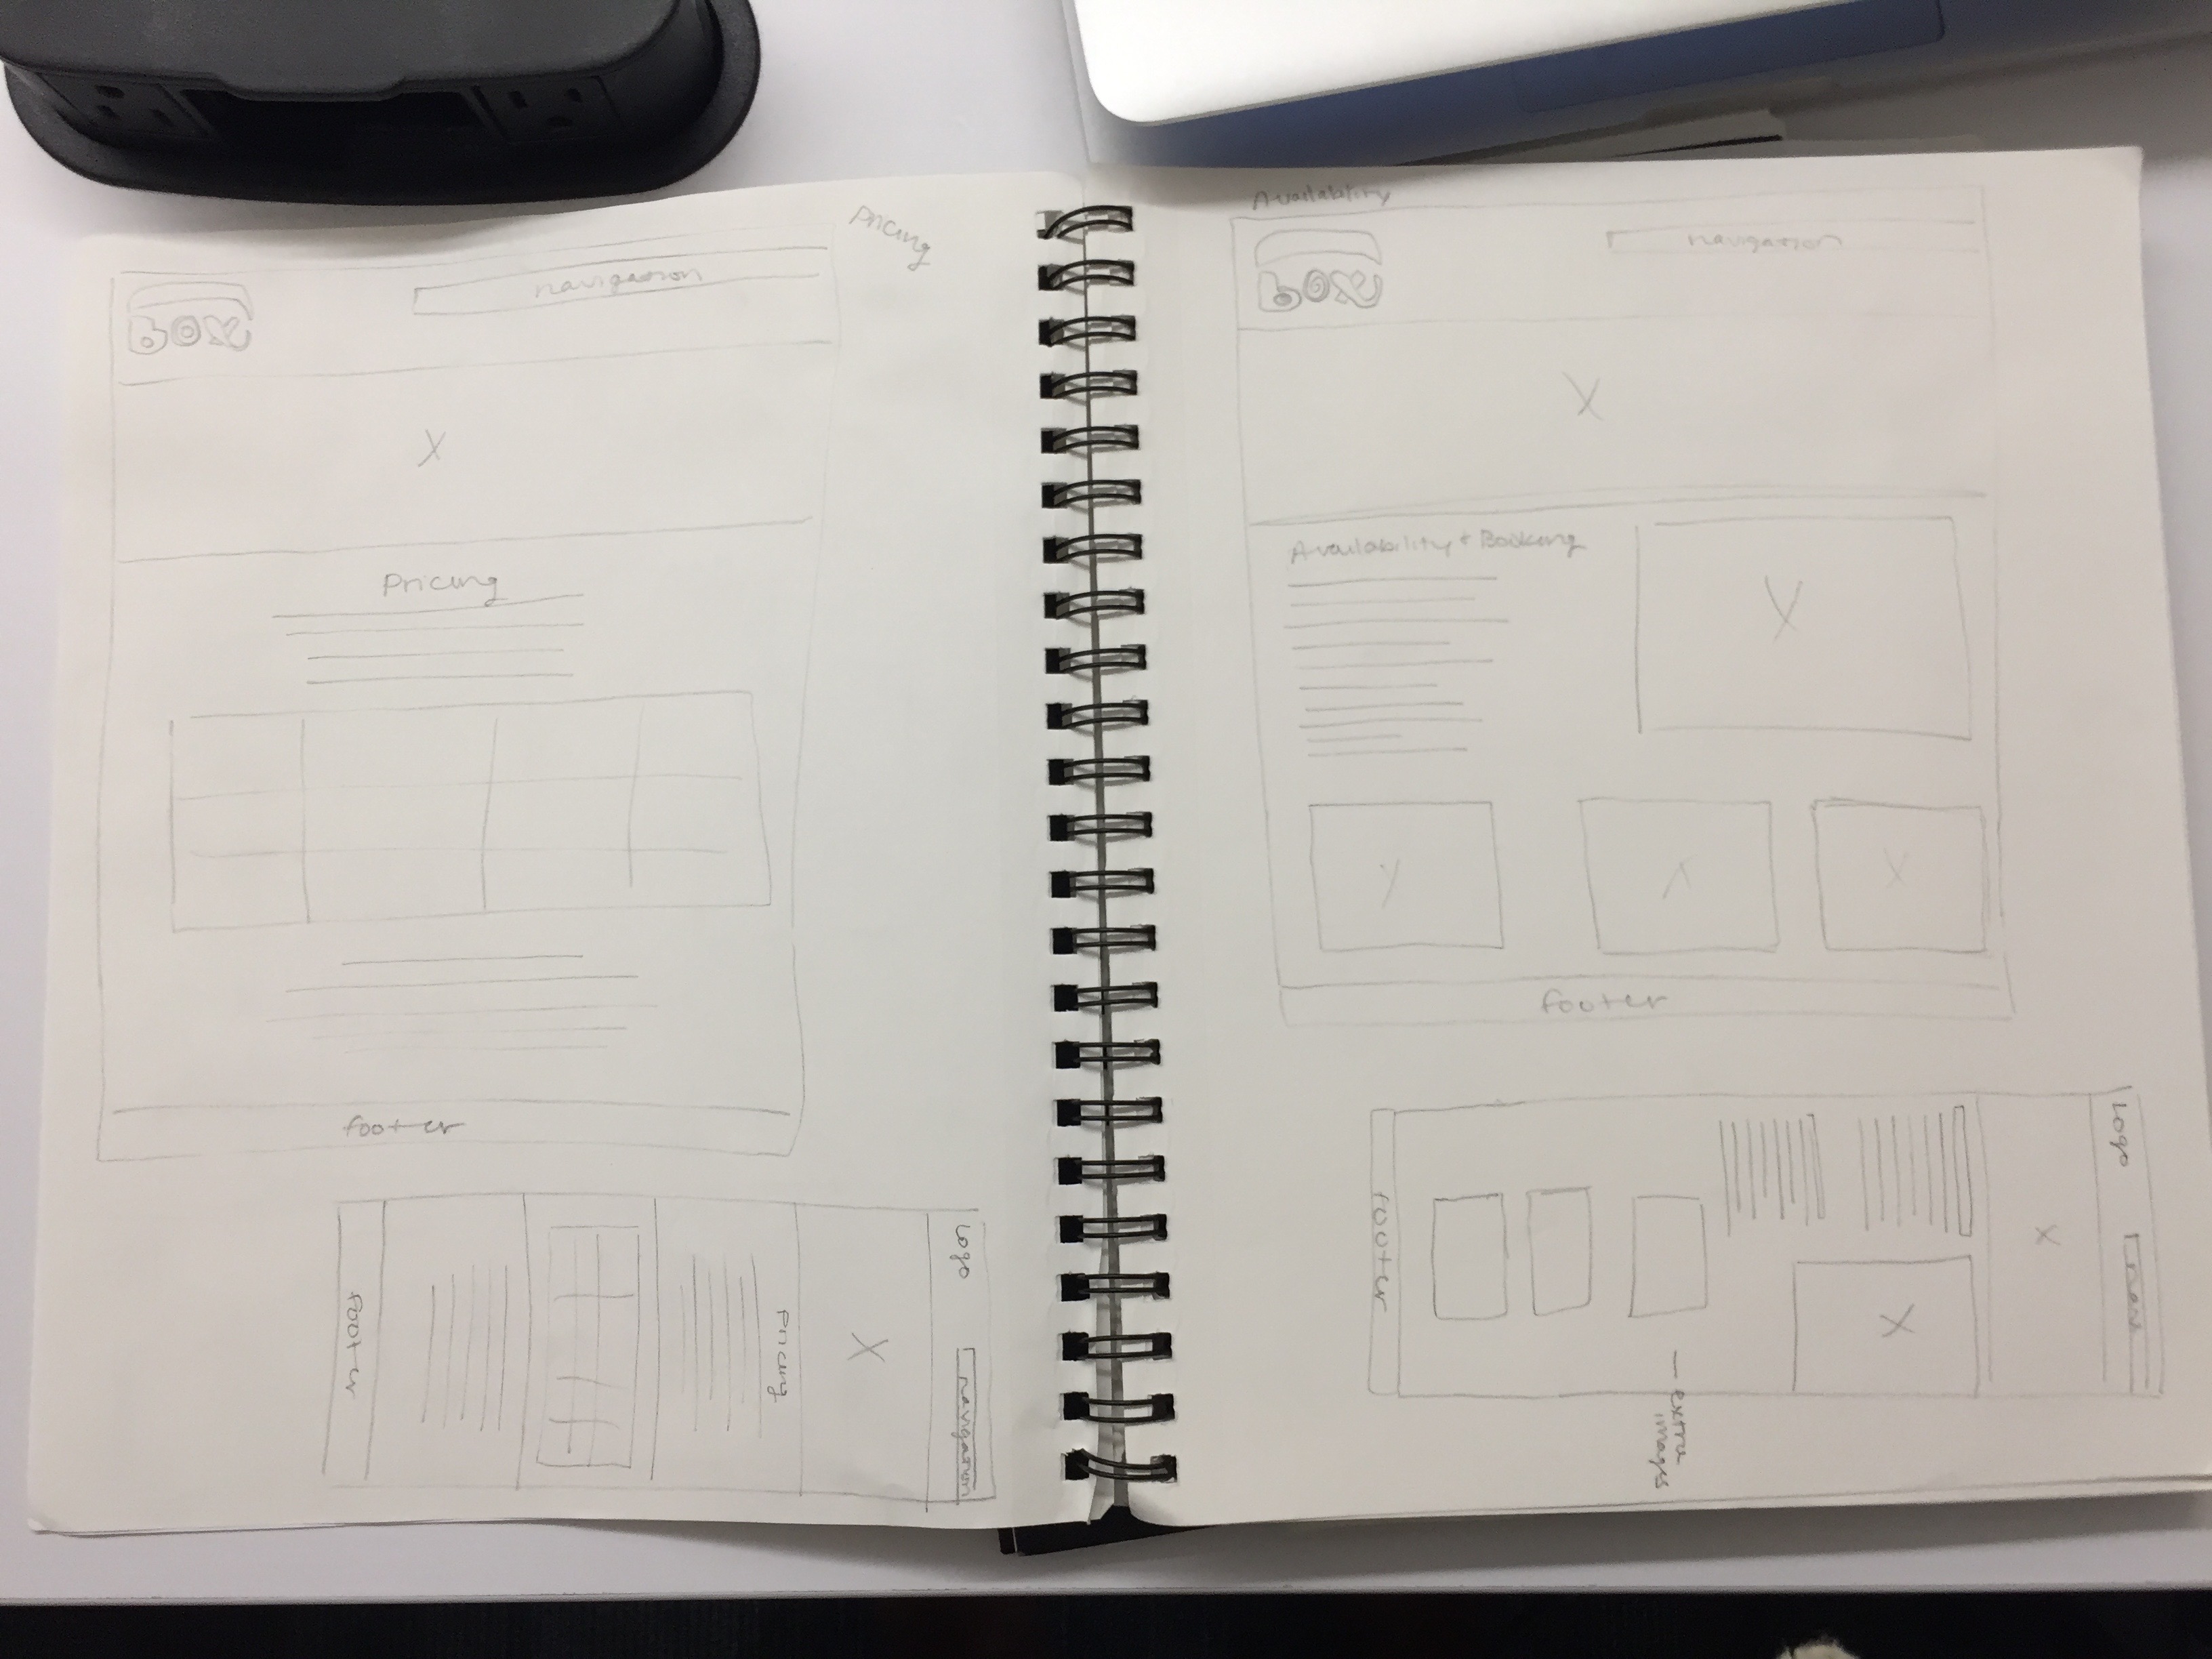 Pricing
navigation
box
X
Pricing
footer
Logo
navigation
X
Pricing
footer
Availability
navigation
box
X
Availability + Booking
X
X
X
X
footer
Logo
nav
X
X
— extra
images
footer